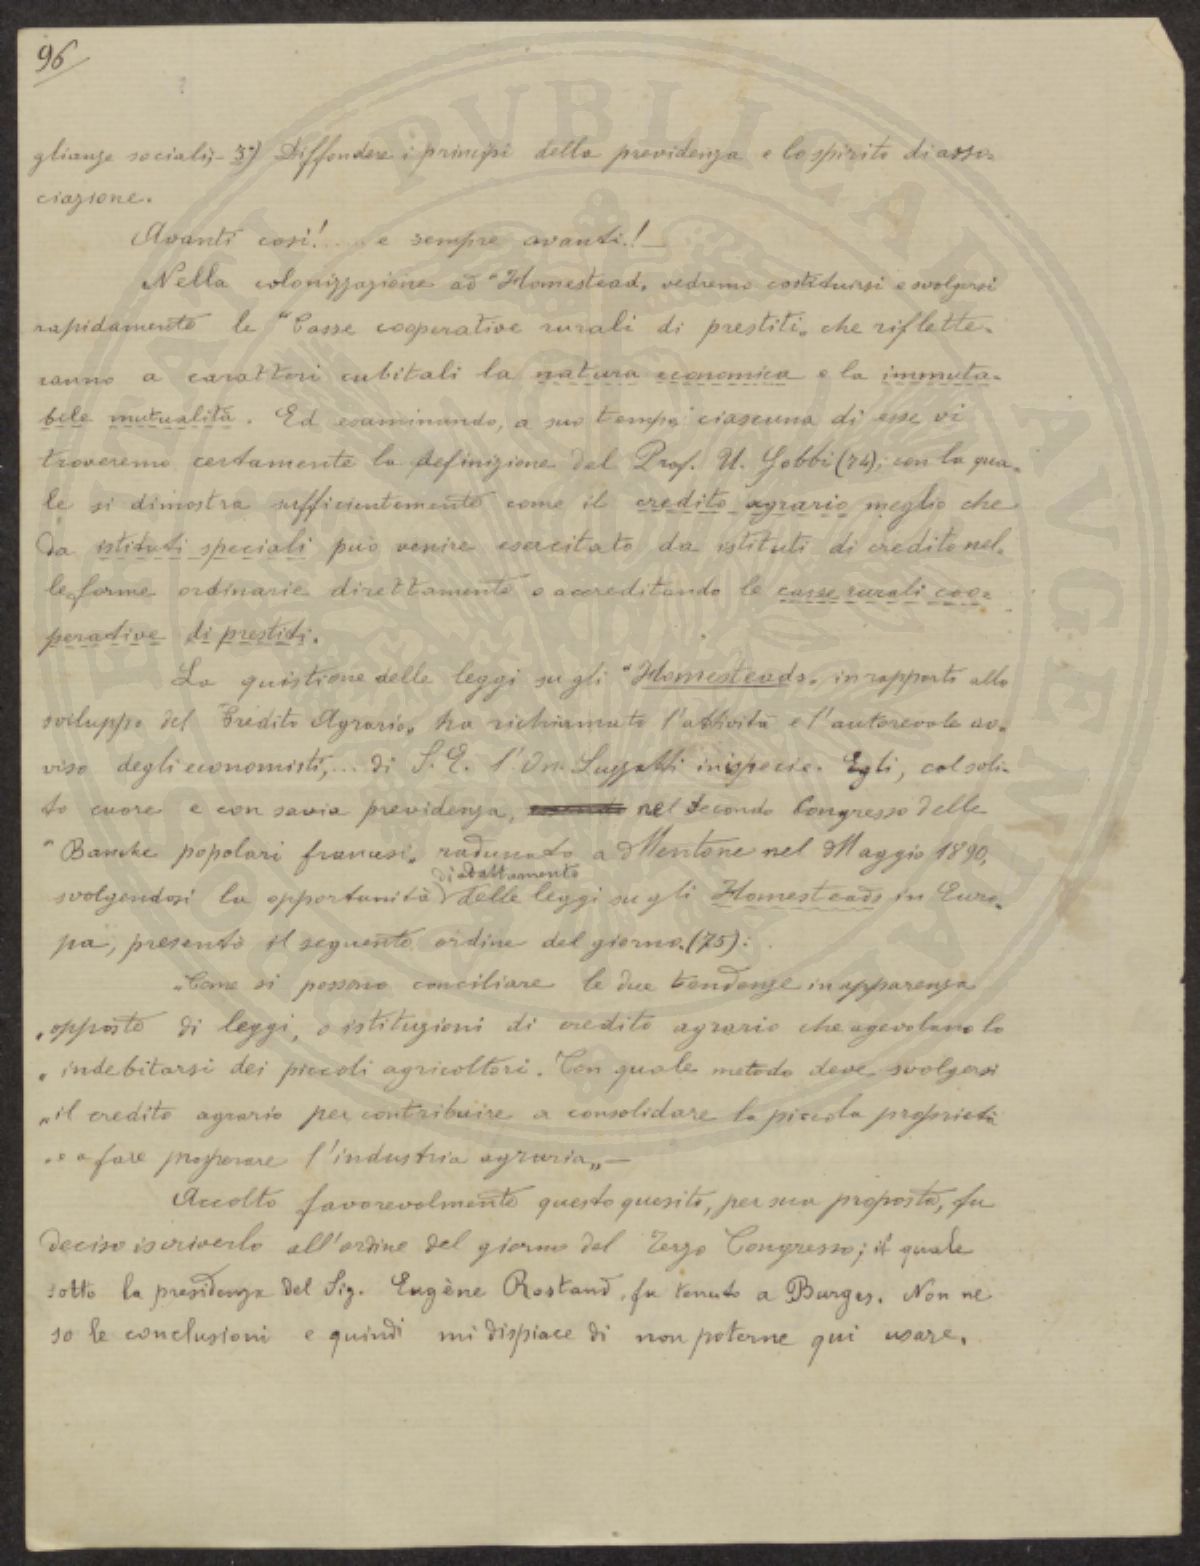 96
glianze sociali;- 3°) Diffondere i principi della previdenza e lo spirito di asso-
ciazione.
Avanti così! .... e sempre avanti! —
Nella colonizzazione ad "Homestead" vedremo costituirsi e svolgersi
rapidamente le "Casse cooperative rurali di prestiti" che riflette-
ranno a caratteri cubitali la natura economica e la immuta-
bile mutualità. Ed esaminando, a suo tempo ciascuna di esse vi
troveremo certamente la definizione del Prof. U. Gobbi (74); con la qua-
le si dimostra sufficientemente come il credito agrario meglio che
da istituti speciali può venire esercitato da istituti di credito nel-
le forme ordinarie direttamente o accreditando le casse rurali coo-
perative di prestiti.
La quistione delle leggi sugli "Homesteads" in rapporto allo
sviluppo del "Credito Agrario" ha richiamato l'attività e l'autorevole av-
viso degli economisti,... di S. E. l'On. Luzzatti in ispecie. Egli, col soli-
to cuore e con savia previdenza, nel secondo Congresso delle
"Banche popolari francesi" radunato a Mentone nel Maggio 1890,
svolgendosi la opportunità di adattamento delle leggi sugli Homesteads in Euro-
pa, presentò il seguente ordine del giorno (75):
"Come si possono conciliare le due tendenze in apparenza
"opposte di leggi, o istituzioni di credito agrario che agevolano lo
" indebitarsi dei piccoli agricoltori. Con quale metodo deve svolgersi
"il credito agrario per contribuire a consolidare la piccola proprietà
"e a fare prosperare l'industria agraria" —
Accolto favorevolmente questo quesito, per sua proposta, fu
deciso iscriverlo all'ordine del giorno del Terzo Congresso; il quale
sotto la presidenza del Sig. Eugène Rostand, fu tenuto a Burges. Non ne
so le conclusioni e quindi mi dispiace di non poterne qui usare.
PVBLICAE
AVGENDAE